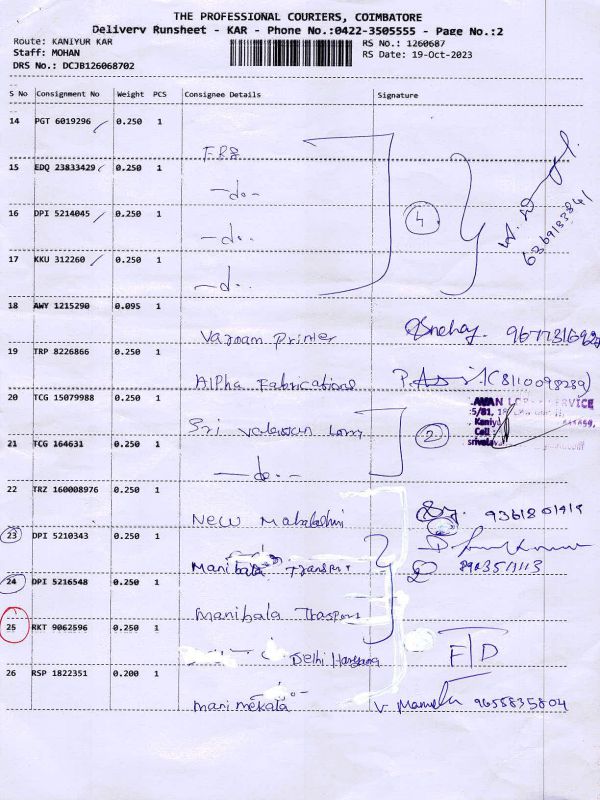 THE PROFESSIONAL COURIERS, COIMBATORE
Delivery Runsheet - KAR - Phone No.:0422-3505555 - Page No.:2
Route: KANIYUR KAR
RS No.: 1260687
Staff: MOHAN
RS Date: 19-Oct-2023
DRS No.: DCJB126068702
S No Consignment No Weight PCS Consignee Details Signature
14 PGT 6019296 0.250 1
FBB
15 EDQ 23833429 0.250 1
-do-
16 DPI 5214045 0.250 1
-do-
4
17 KKU 312260 0.250 1
-do-
18 AWY 1215290 0.095 1
Varnam Printer
19 TRP 8226866 0.250 1
Alpha Fabrications (8110098289)
20 TCG 15079988 0.250 1
Sri Valavan Lorry
2
21 TCG 164631 0.250 1
-do-
22 TRZ 160008976 0.250 1
New Mahalashmi
23 DPI 5210343 0.250 1
Manibala Transport
24 DPI 5216548 0.250 1
Manibala Trasport
25 RKT 9062596 0.250 1
Delhi Haryana F/D
26 RSP 1822351 0.200 1
Manimekala 9655835804